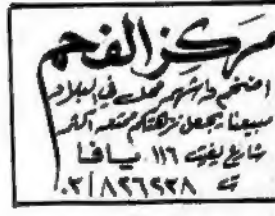 مركز الفحم
افخم واشهر محل في البلاد
مبيعنا يجعل نزهتكم ممتعه اكثر
شارع يفت ١١٦ يافا
ت ٠٣/٨٢٦٢٢٨